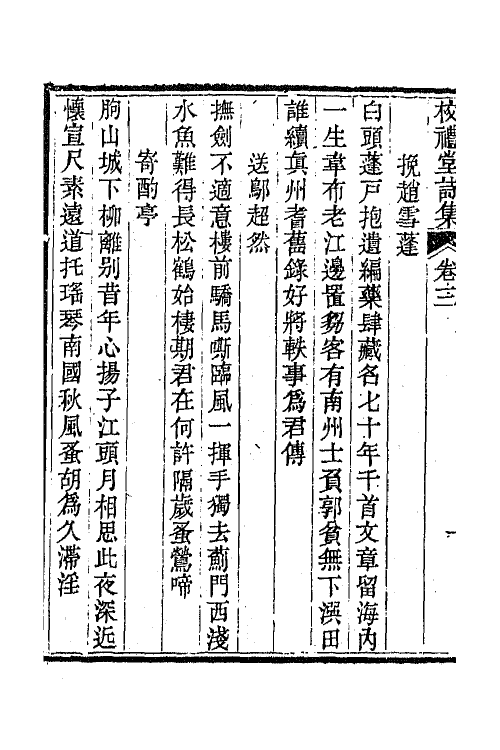 校禮堂詩集 卷三 一
挽趙雪蓬
白頭蓬戸抱遺編藥肆藏名七十年千首文章留海內
一生韋布老江邊置芻客有南州士負郭貧無下潠田
誰續真州耆舊錄好將軼事為君傳
送鄔超然
撫劍不適意樓前驕馬嘶臨風一揮手獨去薊門西淺
水魚難得長松鶴始棲期君在何許隔歲蚤鶯啼
寄酌亭
朐山城下柳離別昔年心揚子江頭月相思此夜深近
懷宣尺素遠道托瑤琴南國秋風蚤胡為久滯淫